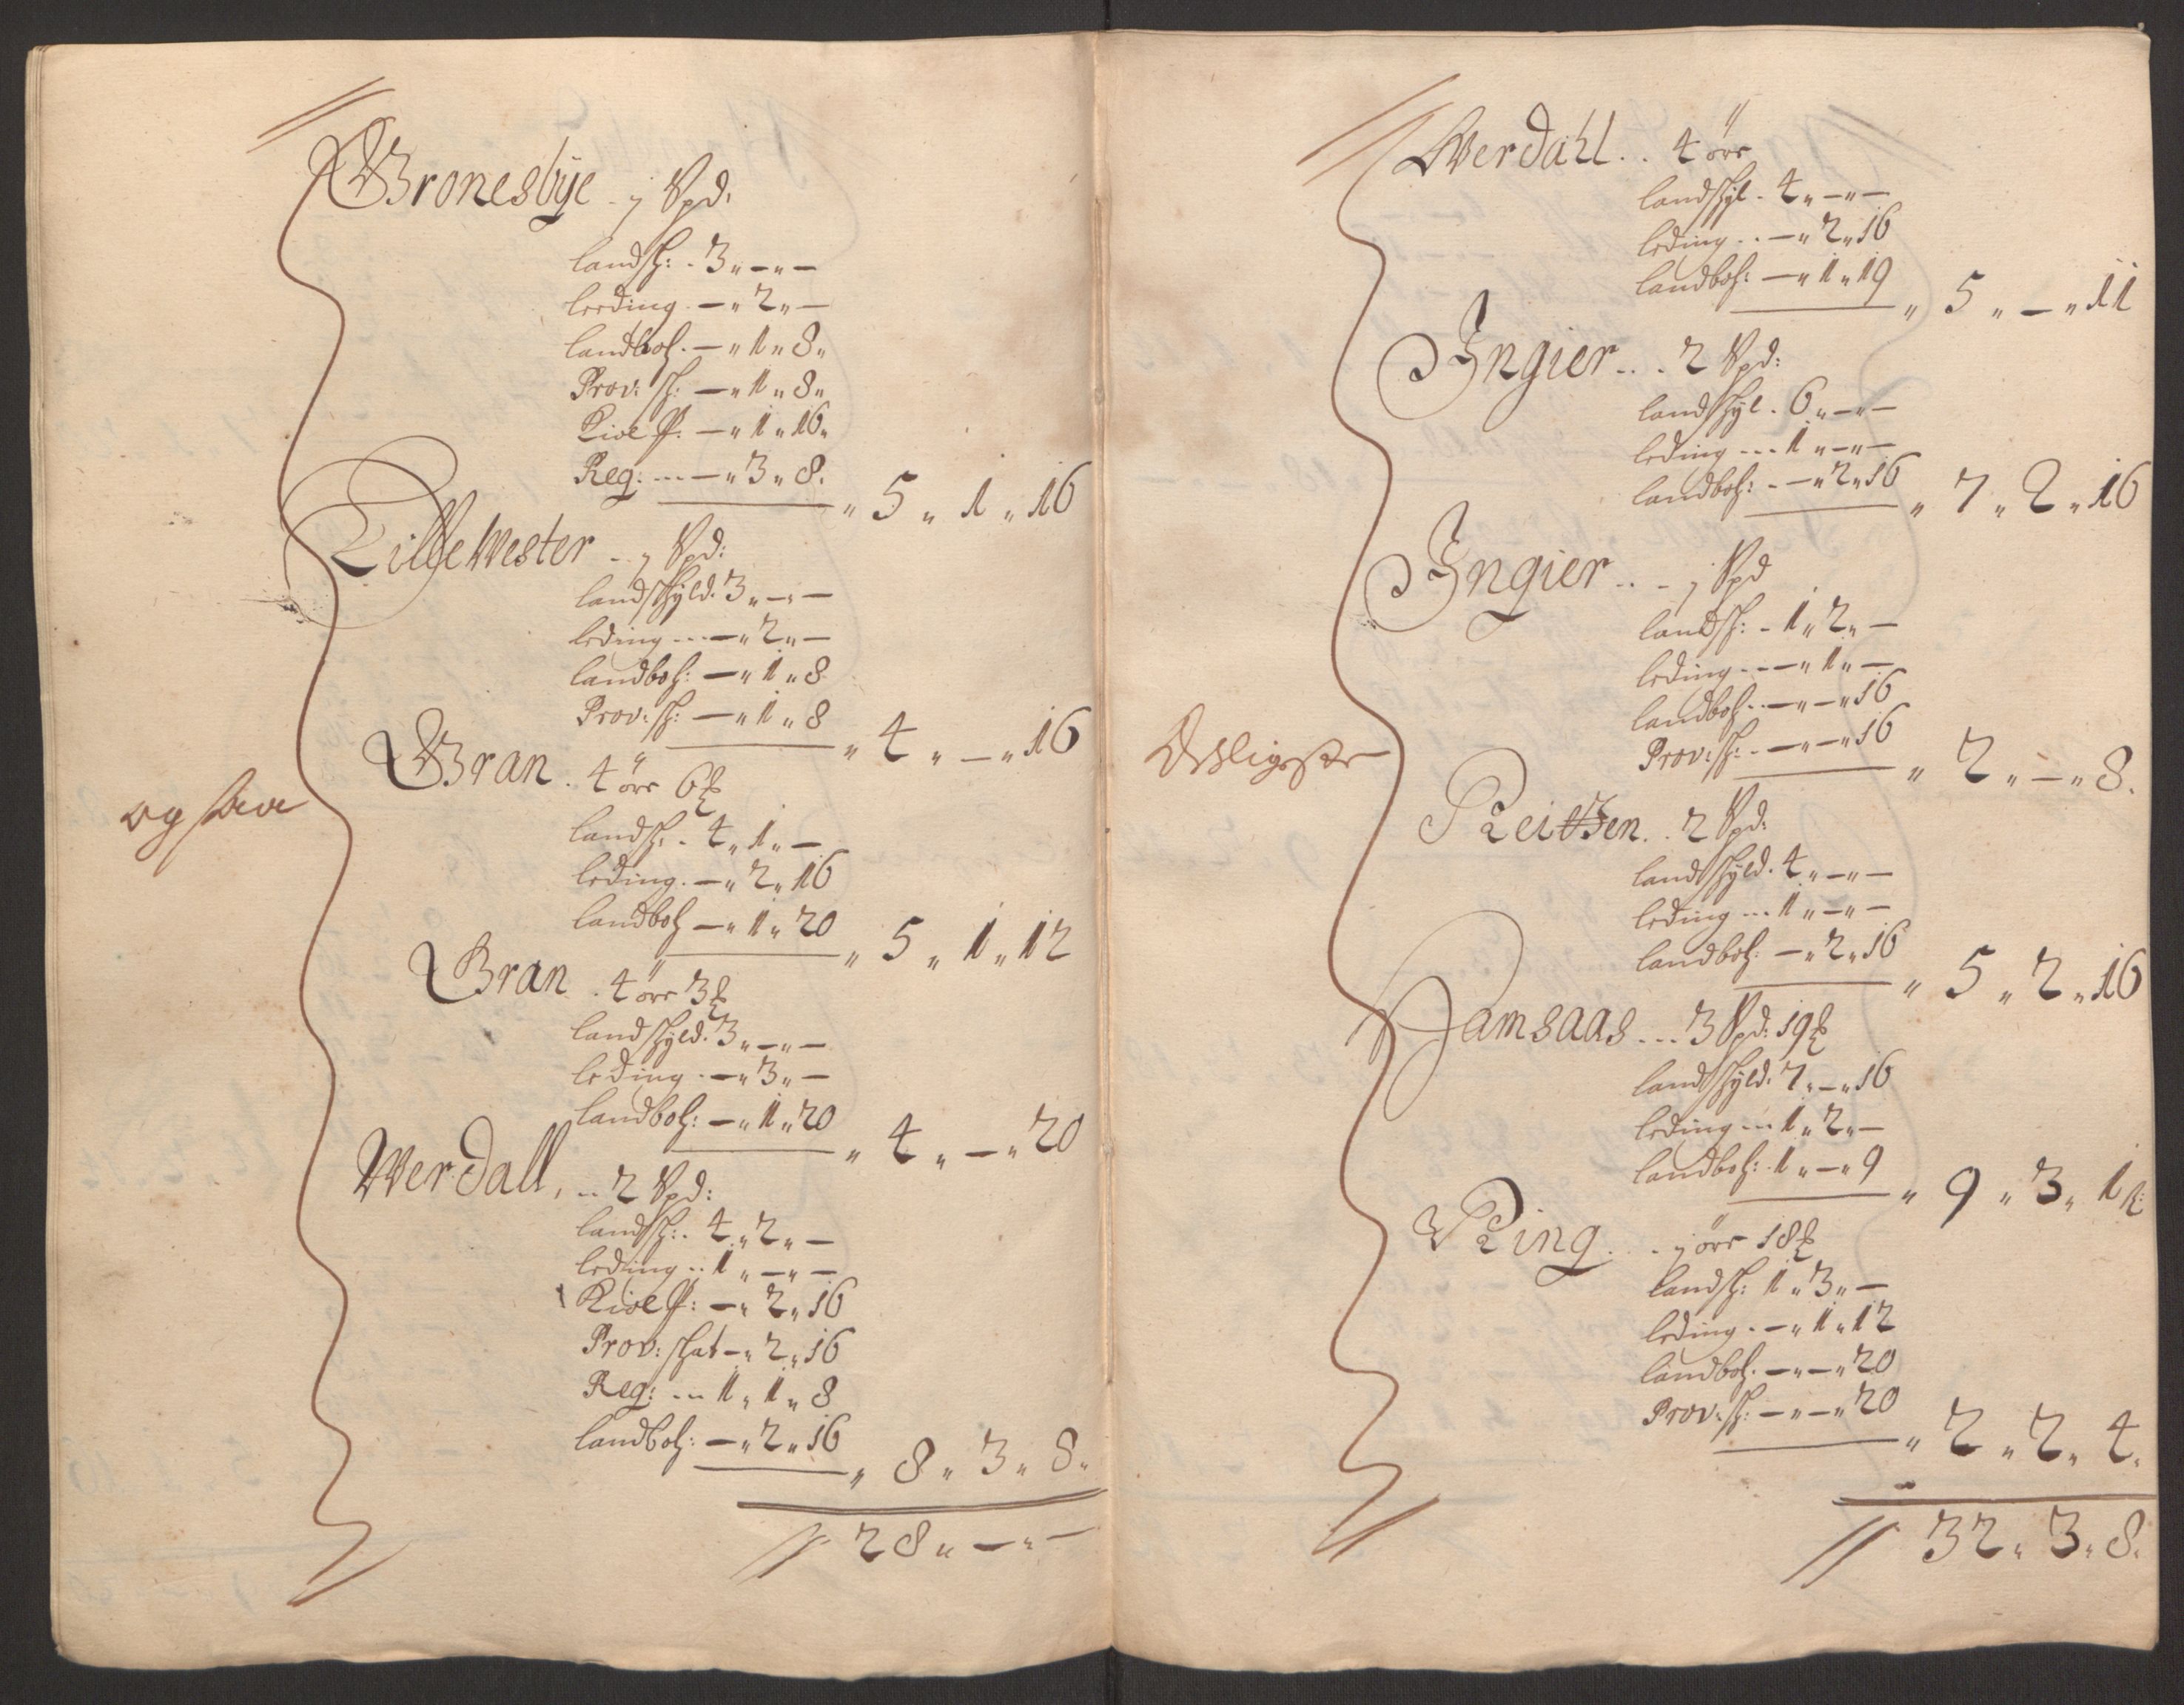 Bronesbye - j Spd.
landsh: . 3 „ — „ —
leeding . — „ 2 „ —
landboh . — „ 1 „ 8 „
Prov: sh: — „ 1 „ 8 „
— „ 1 „ 16 „
Reg: ... — „ 3 „ 8 .
„ 5 „ 1 „ 16
Lille Wester - j Spd:
landshyld. 3 „ — „ —
leding ... — „ 2 „ —
landboh: — „ 1 „ 8
Prov: sh: — „ 1 „ 8
„ 4 „ — „ 16
Bran . 4 öre 6 ℔
landsh. . 4 „ 1 „ —
leding . — „ 2 „ 16
landboh — „ 1 „ 20
„ 5 „ 1 „ 12
Bran . 4 öre 3 ℔
landshyld. 3 „ — „ —
leding . — „ 3 „ —
landboh: — „ 1 „ 20
„ 4 „ — „ 20
Werdall, .. 2 Spd:
landsh: . 4 „ 2 „ —
leding .. 1 „ — „ —
— „ 2 „ 16
Prov: shat — „ 2 „ 16
Reg: ... 1 „ 1 „ 8
landboh: — „ 2 „ 16
„ 8 „ 3 „ 8 „
// 28 „ — „ —
Werdahl . . 4 öre
landshyl . 4 „ — „ —
leding .. — „ 2 „ 16
landboh: — „ 1 „ 19
„ 5 „ — „ 11
Ingier . . . 2 Spd:
landshyl . 6 „ — „ —
leding ... 1 „ — „ —
landboh: . — „ 2 „ 16
„ 7 „ 2 „ 16
Ingier . . - j Spd
landsh: - 1 „ 2 „ —
leding ... — „ 1 „ —
landboh .. — „ — „ 16
Prov: sh: . — „ — „ 16
„ 2 „ — „ 8 .
Desligeste
Reitsen . . 2 Spd:
landshyld. 4 „ — „ —
leding ... 1 „ — „ —
landboh: — „ 2 „ 16
„ 5 „ 2 „ 16
Ramsaas ... 3 Spd: 19 ℔
landshyld. 7 „ — „ 16
leding ... 1 „ 2 „ —
landboh: . 1 „ — „ 9
„ 9 „ 3 „ 1
Ring . . - j öre 18 ℔
landsh: 1 „ 3 „ —
leding . — „ 1 „ 12
landboh . — „ — „ 20
Prov: sh: — „ — „ 20
„ 2 „ 2 „ 4 .
// 32 „ 3 „ 8 .